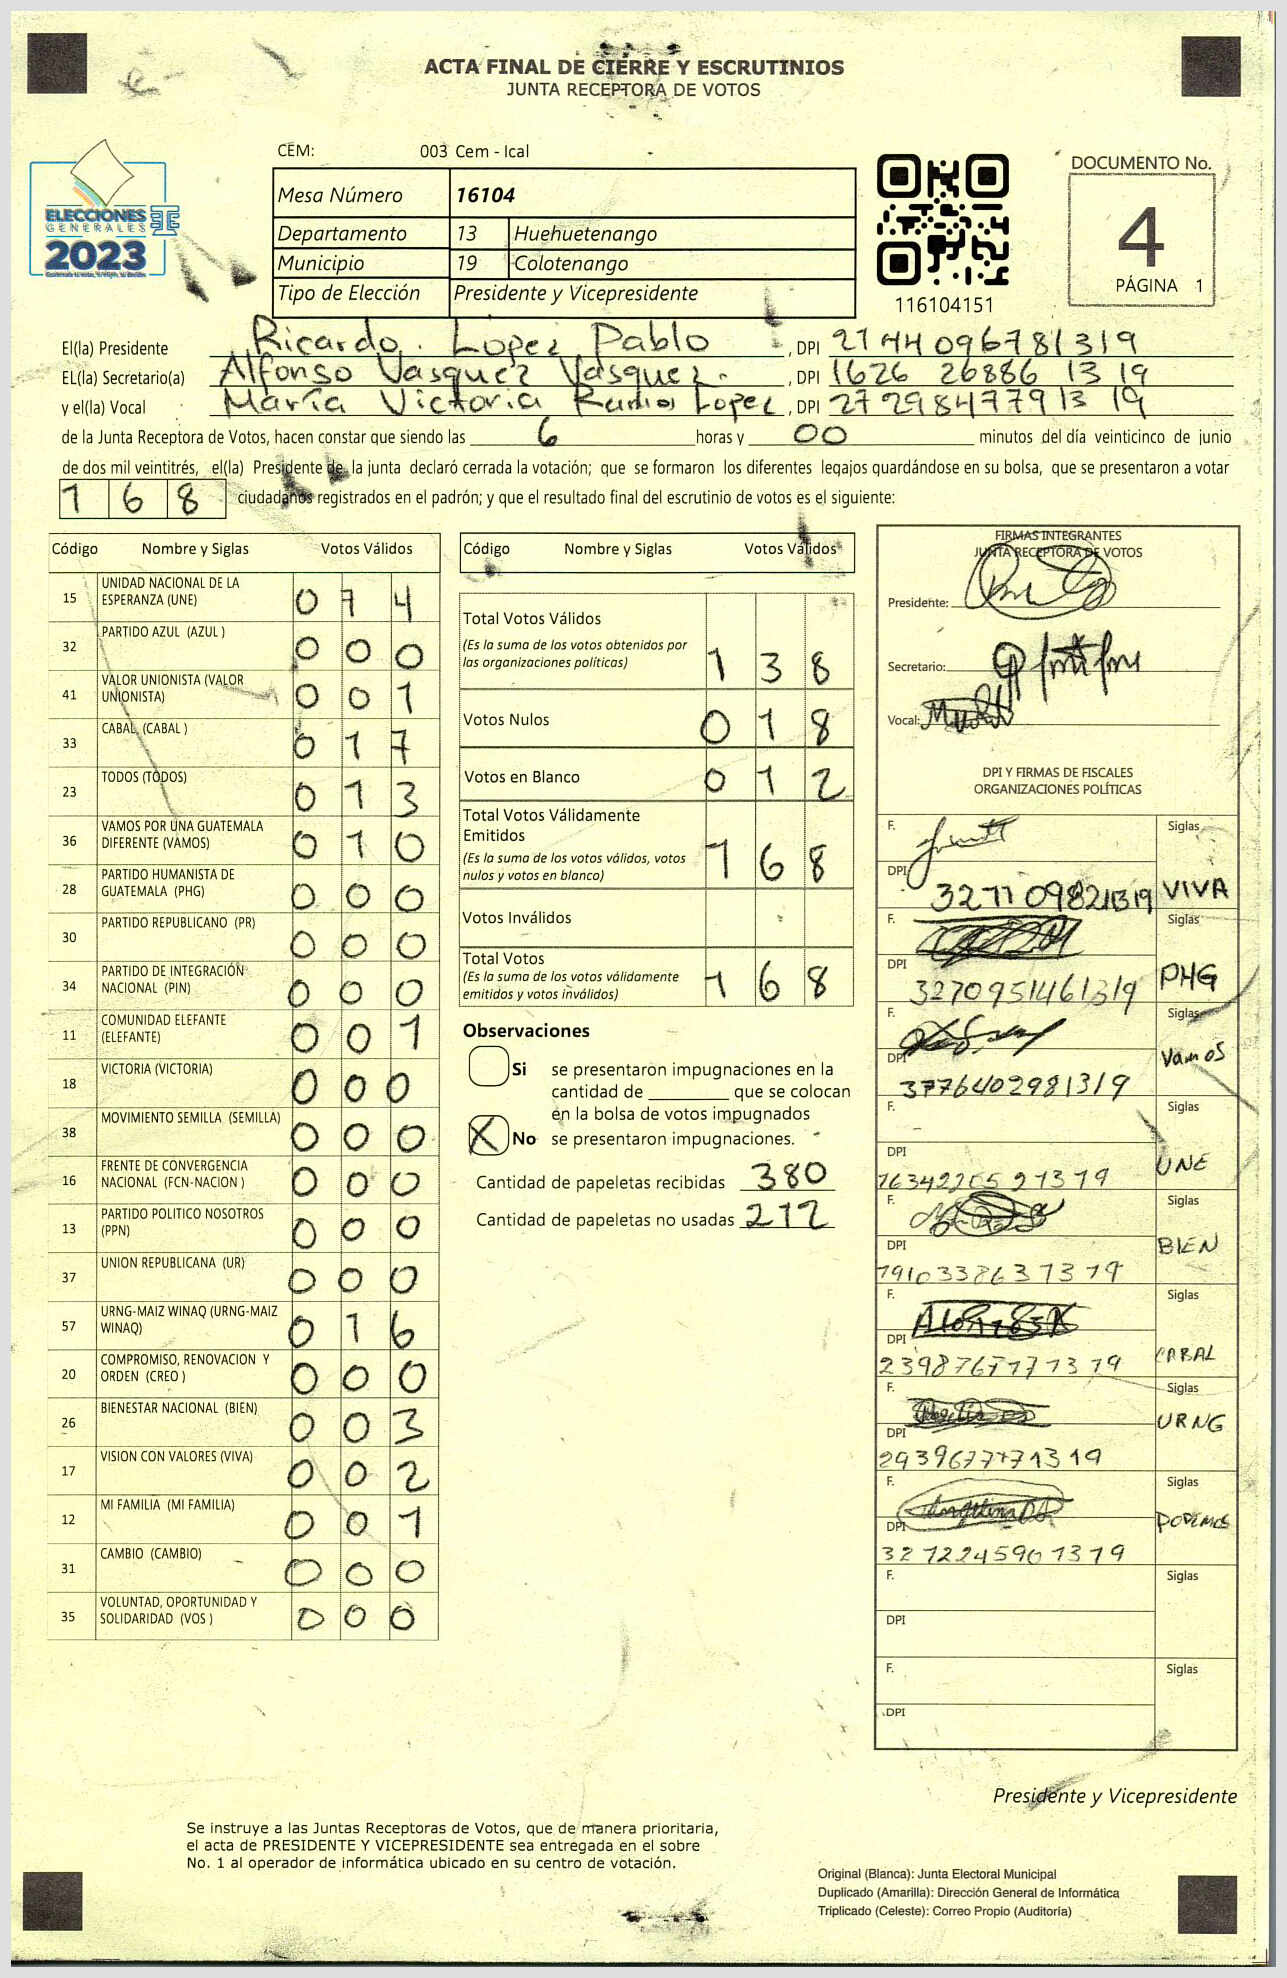 ACTA FINAL DE CIERRE Y ESCRUTINIOS
JUNTA RECEPTORA DE VOTOS
ELECCIONES
GENERALES
2023
CEM: 003 Cem - Ical
Mesa Número 16104
Departamento 13 Huehuetenango
Municipio 19 Colotenango
Tipo de Elección Presidente y Vicepresidente
116104151
DOCUMENTO No.
4
PÁGINA 1
El(la) Presidente Ricardo. Lopez Pablo, DPI 2144096781319
EL(la) Secretario(a) Alfonso Vasquez Vasquez., DPI 1626 26886 1319
y el(la) Vocal María Victoria Ramos Lopez, DPI 2729847791319
de la Junta Receptora de Votos, hacen constar que siendo las 6 horas y 00 minutos del día veinticinco de junio
de dos mil veintitrés, el(la) Presidente de la junta declaró cerrada la votación; que se formaron los diferentes legajos guardándose en su bolsa, que se presentaron a votar
168 ciudadanos registrados en el padrón; y que el resultado final del escrutinio de votos es el siguiente:
Código Nombre y Siglas Votos Válidos
15 UNIDAD NACIONAL DE LA ESPERANZA (UNE) 074
32 PARTIDO AZUL (AZUL ) 000
41 VALOR UNIONISTA (VALOR UNIONISTA) 001
33 CABAL (CABAL ) 017
23 TODOS (TODOS) 013
36 VAMOS POR UNA GUATEMALA DIFERENTE (VAMOS) 010
28 PARTIDO HUMANISTA DE GUATEMALA (PHG) 000
30 PARTIDO REPUBLICANO (PR) 000
34 PARTIDO DE INTEGRACIÓN NACIONAL (PIN) 000
11 COMUNIDAD ELEFANTE (ELEFANTE) 001
18 VICTORIA (VICTORIA) 000
38 MOVIMIENTO SEMILLA (SEMILLA) 000
16 FRENTE DE CONVERGENCIA NACIONAL (FCN-NACION ) 000
13 PARTIDO POLITICO NOSOTROS (PPN) 000
37 UNION REPUBLICANA (UR) 000
57 URNG-MAIZ WINAQ (URNG-MAIZ WINAQ) 016
20 COMPROMISO, RENOVACION Y ORDEN (CREO ) 000
26 BIENESTAR NACIONAL (BIEN) 003
17 VISION CON VALORES (VIVA) 002
12 MI FAMILIA (MI FAMILIA) 001
31 CAMBIO (CAMBIO) 000
35 VOLUNTAD, OPORTUNIDAD Y SOLIDARIDAD (VOS ) 000
Código Nombre y Siglas Votos Válidos
Total Votos Válidos
(Es la suma de los votos obtenidos por
las organizaciones políticas) 138
Votos Nulos 018
Votos en Blanco 012
Total Votos Válidamente
Emitidos
(Es la suma de los votos válidos, votos
nulos y votos en blanco) 168
Votos Inválidos
Total Votos
(Es la suma de los votos válidamente
emitidos y votos inválidos) 168
Observaciones
Si se presentaron impugnaciones en la
cantidad de ________ que se colocan
en la bolsa de votos impugnados
X No se presentaron impugnaciones.
Cantidad de papeletas recibidas 380
Cantidad de papeletas no usadas 212
FIRMAS INTEGRANTES
JUNTA RECEPTORA DE VOTOS
Presidente:
Secretario:
Vocal:
DPI Y FIRMAS DE FISCALES
ORGANIZACIONES POLÍTICAS
F. Siglas
DPI 3271109821319 VIVA
F. Siglas
DPI 3270951461319 PHG
F. Siglas
DPI 3776402981319 Vamos
F. Siglas
DPI UNE
F. Siglas
DPI 1910338631319 BIEN
F. Siglas
DPI CABAL
F. Siglas
DPI URNG
F. Siglas
DPI 3212245901319 PODEMOS
F. Siglas
DPI
F. Siglas
DPI
Presidente y Vicepresidente
Se instruye a las Juntas Receptoras de Votos, que de manera prioritaria,
el acta de PRESIDENTE Y VICEPRESIDENTE sea entregada en el sobre
No. 1 al operador de informática ubicado en su centro de votación.
Original (Blanca): Junta Electoral Municipal
Duplicado (Amarilla): Dirección General de Informática
Triplicado (Celeste): Correo Propio (Auditoría)